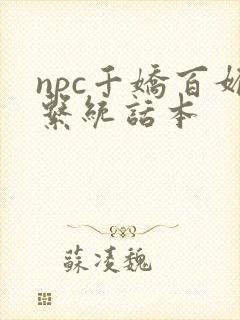 npc千嬌百媚
繫統話本
蘇淩魏